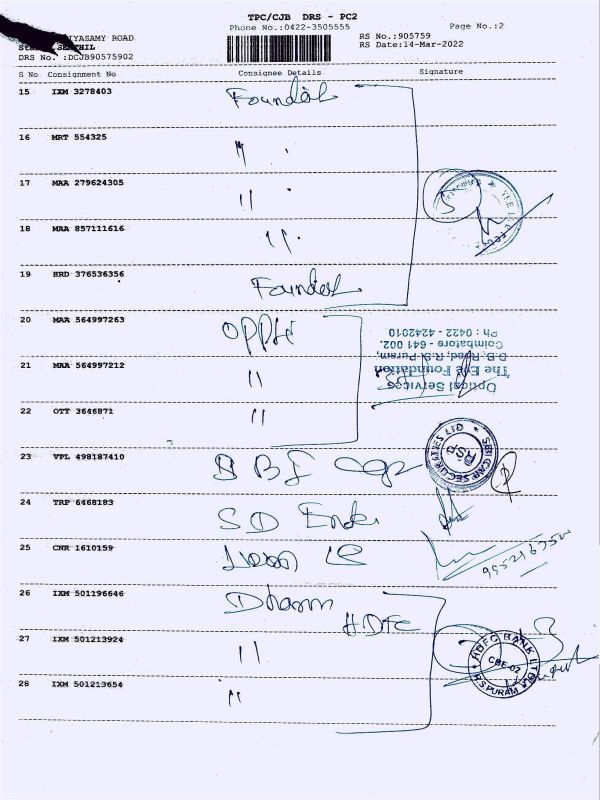 TPC/CJB DRS - PC2
Phone No.:0422-3505555
Page No.:2
IYASAMY ROAD
RS No.:905759
RS Date:14-Mar-2022
DRS No. :DCJB90575902
S No Consignment No Consignee Details Signature
15 IXM 3278403
16 MRT 554325 "
17 MAA 279624305 "
18 MAA 857111616 "
19 HRD 376536356
20 MAA 564997263
21 MAA 564997212 "
22 OTT 3646871 "
Optical Services
The Eye Foundation
D.B. Road, R.S. Puram,
Coimbatore - 641 002.
Ph : 0422 - 4242010
23 VPL 498187410 SBI Cap
SBICAP SECURITIES LTD
RSP
24 TRP 6468183 SD
25 CNR 1610159
26 IXM 501196646 Dharm
HDFC
27 IXM 501213924 "
HDFC BANK LTD
R.S PURAM
28 IXM 501213654 "